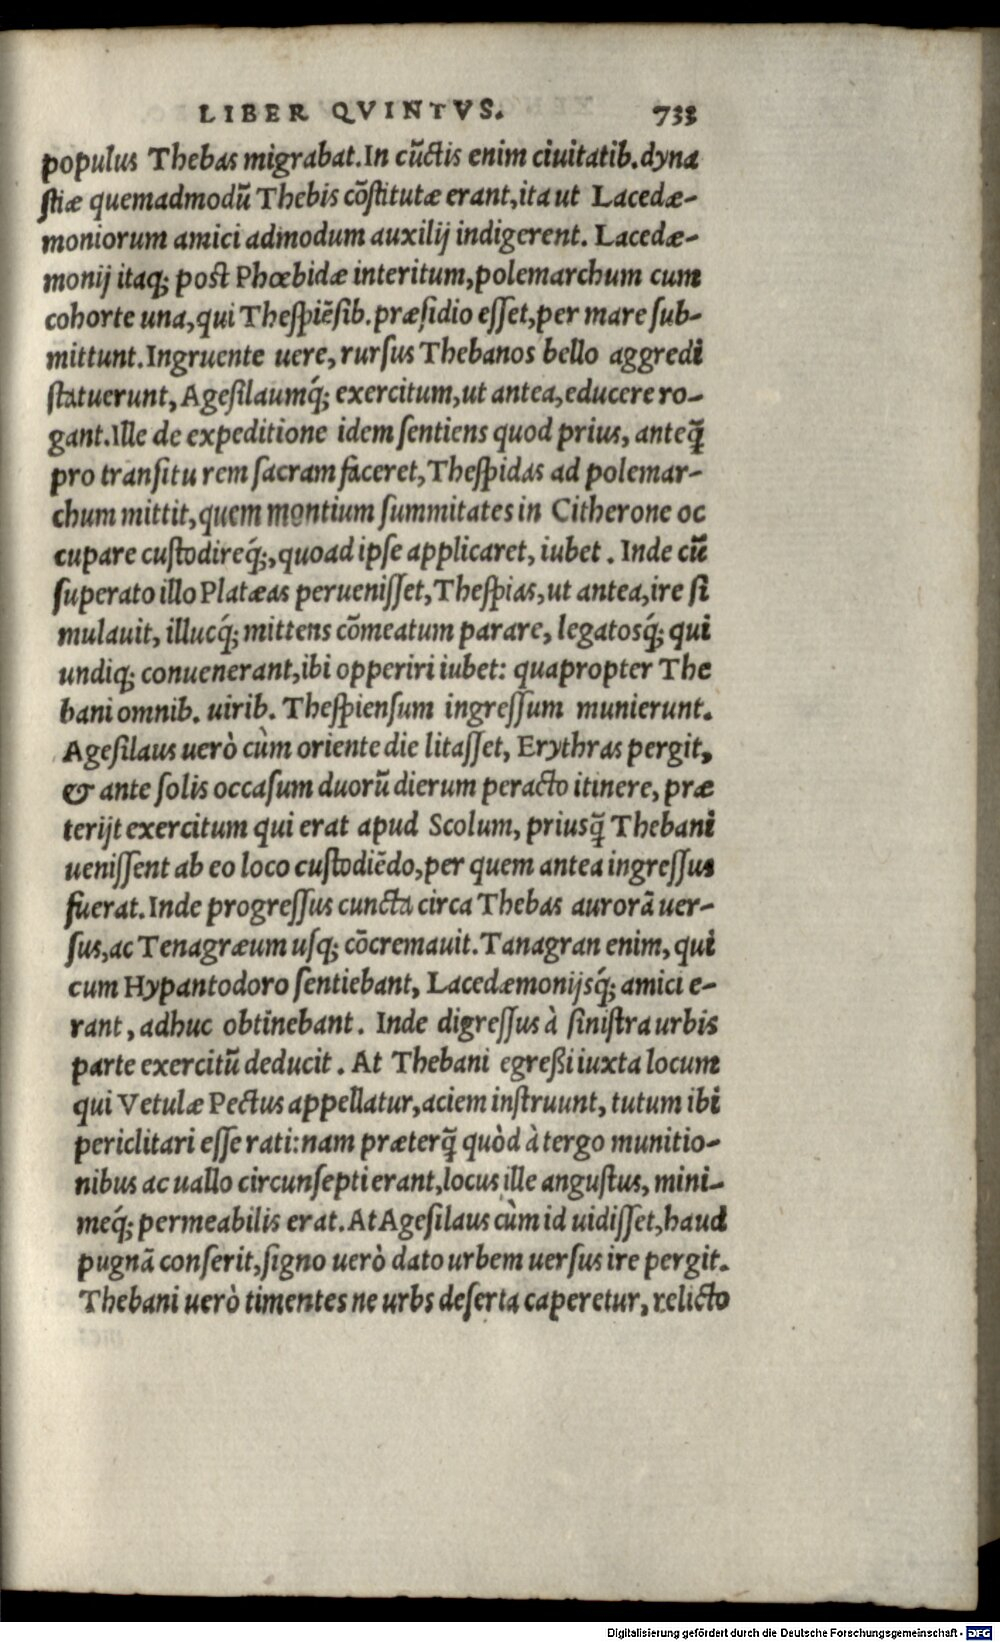 LIBER QVINTVS. 733
populus Thebas migrabat. In cũctis enim ciuitatib. dyna
stiæ quemadmodũ Thebis cõstitutæ erant, ita ut Lacedæ-
moniorum amici admodum auxilij indigerent. Lacedæ-
monij itaq; post Phœbidæ interitum, polemarchum cum
cohorte una, qui Thespiẽsib. præsidio esset, per mare sub-
mittunt. Ingruente uere, rursus Thebanos bello aggredi
statuerunt, Agesilaumq́; exercitum, ut antea, educere ro-
gant. Ille de expeditione idem sentiens quod prius, anteq̃
pro transitu rem sacram faceret, Thespidas ad polemar-
chum mittit, quem montium summitates in Citherone oc
cupare custodireq́;, quoad ipse applicaret, iubet. Inde cũ
superato illo Platæas peruenisset, Thespias, ut antea, ire si
mulauit, illucq́; mittens cõmeatum parare, legatosq́; qui
undiq; conuenerant, ibi opperiri iubet: quapropter The
bani omnib. uirib. Thespiensum ingressum munierunt.
Agesilaus uerò cùm oriente die litasset, Erythras pergit,
& ante solis occasum duorũ dierum peracto itinere, præ
terijt exercitum qui erat apud Scolum, priusq̃ Thebani
uenissent ab eo loco custodiẽdo, per quem antea ingressus
fuerat. Inde progressus cuncta circa Thebas aurorã uer-
sus, ac Tenagræum usq; cõcremauit. Tanagran enim, qui
cum Hypantodoro sentiebant, Lacedæmonijsq́; amici e-
rant, adhuc obtinebant. Inde digressus à sinistra urbis
parte exercitũ deducit. At Thebani egreßi iuxta locum
qui Vetulæ Pectus appellatur, aciem instruunt, tutum ibi
periclitari esse rati: nam præterq̃ quòd à tergo munitio-
nibus ac uallo circunsepti erant, locus ille angustus, mini-
meq́; permeabilis erat. At Agesilaus cùm id uidisset, haud
pugnã conserit, signo uerò dato urbem uersus ire pergit.
Thebani uerò timentes ne urbs deserta caperetur, relicto
Digitalisierung gefördert durch die Deutsche Forschungsgemeinschaft - DFG